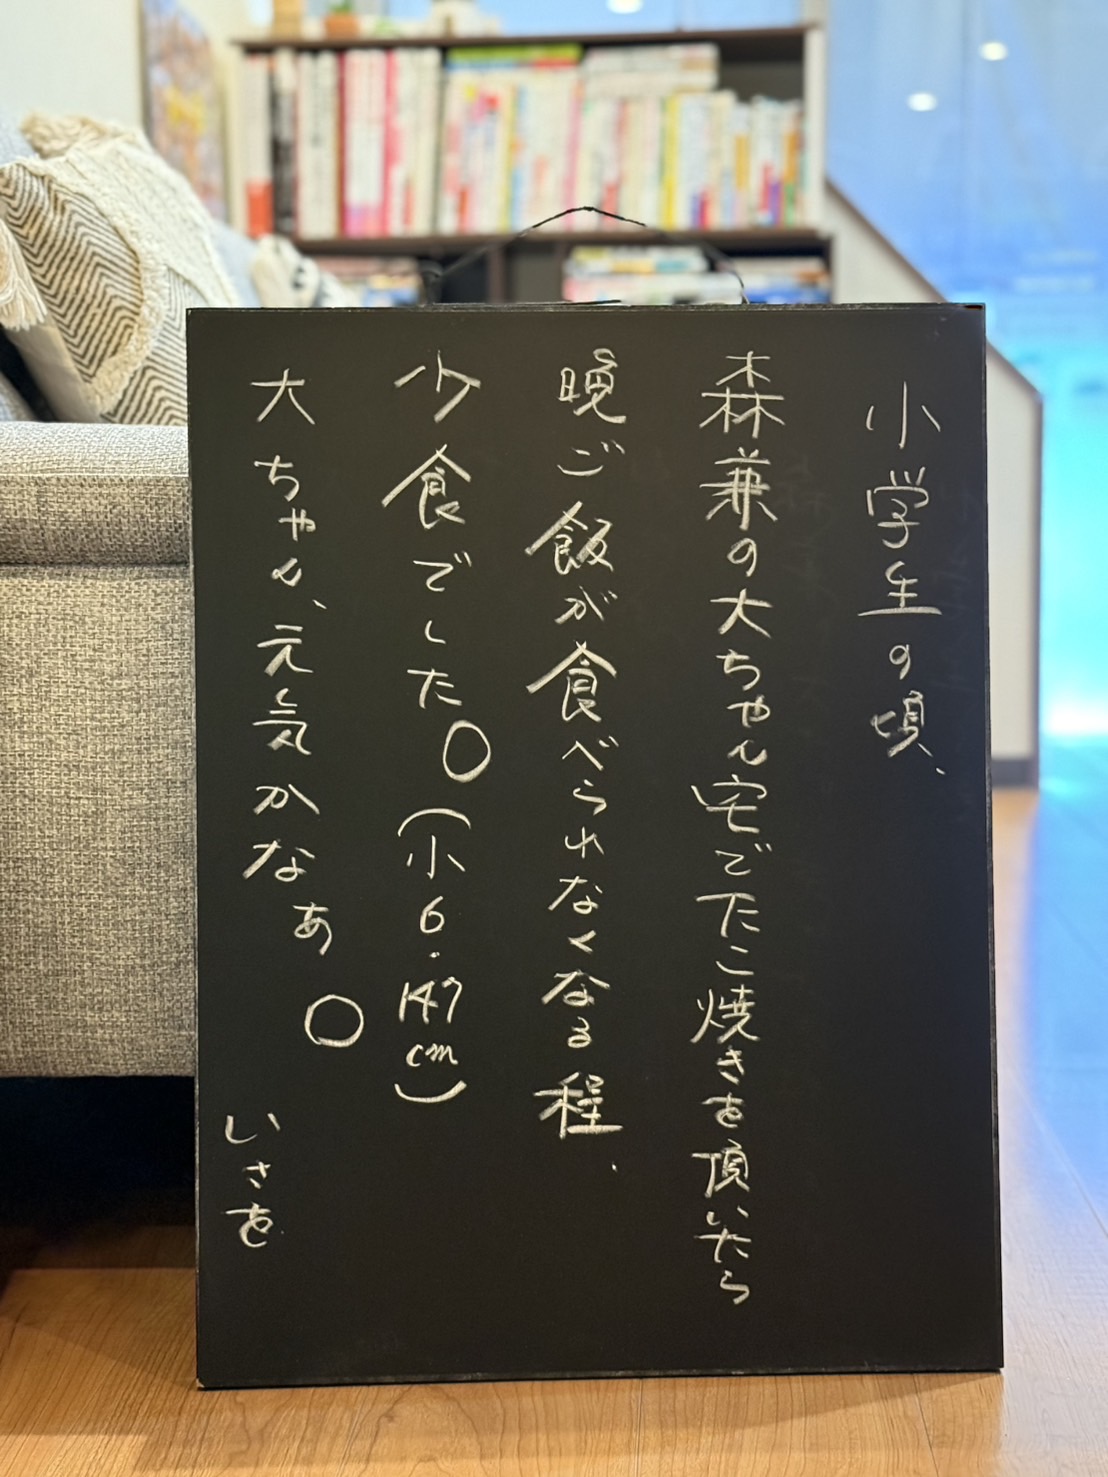 小学生の頃、
森兼の大ちゃん宅でたこ焼きを頂いたら
晩ご飯が食べられなくなる程、
少食でした。(小6・147cm)
大ちゃん、元気かなぁ。
いさを